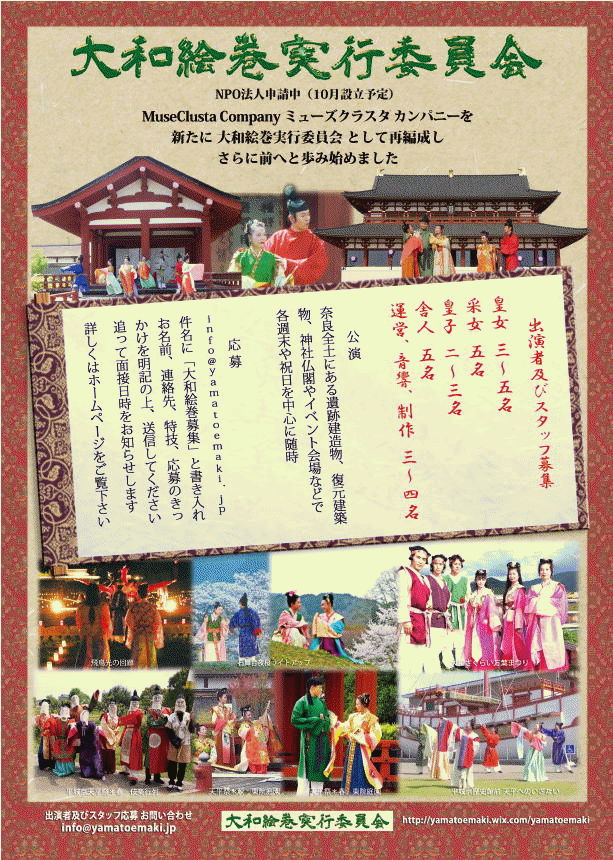 大和絵巻実行委員会
NPO法人申請中（10月設立予定）
MuseClusta Company ミューズクラスタ カンパニーを
新たに 大和絵巻実行委員会 として再編成し
さらに前へと歩み始めました
出演者及びスタッフ募集
皇女 三〜五名
采女 五名
皇子 二〜三名
舎人 五名
運営、音響、制作 三〜四名
公演
奈良全土にある遺跡建造物、復元建築
物、神社仏閣やイベント会場などで
各週末や祝日を中心に随時
応募
info@yamatoemaki.jp
件名に「大和絵巻募集」と書き入れ
お名前、連絡先、特技、応募のきっ
かけを明記の上、送信してください
追って面接日時をお知らせします
詳しくはホームページをご覧下さい
飛鳥光の回廊
石舞台夜桜ライトアップ
さくらい万葉まつり
平城京天平祭・春 衛士行列
天平祭・春 東院庭園
天平祭・春 東院庭園
平城京歴史館前 天平へのいざない
出演者及びスタッフ応募 お問い合わせ
info@yamatoemaki.jp
大和絵巻実行委員会
http://yamatoemaki.wix.com/yamatoemaki